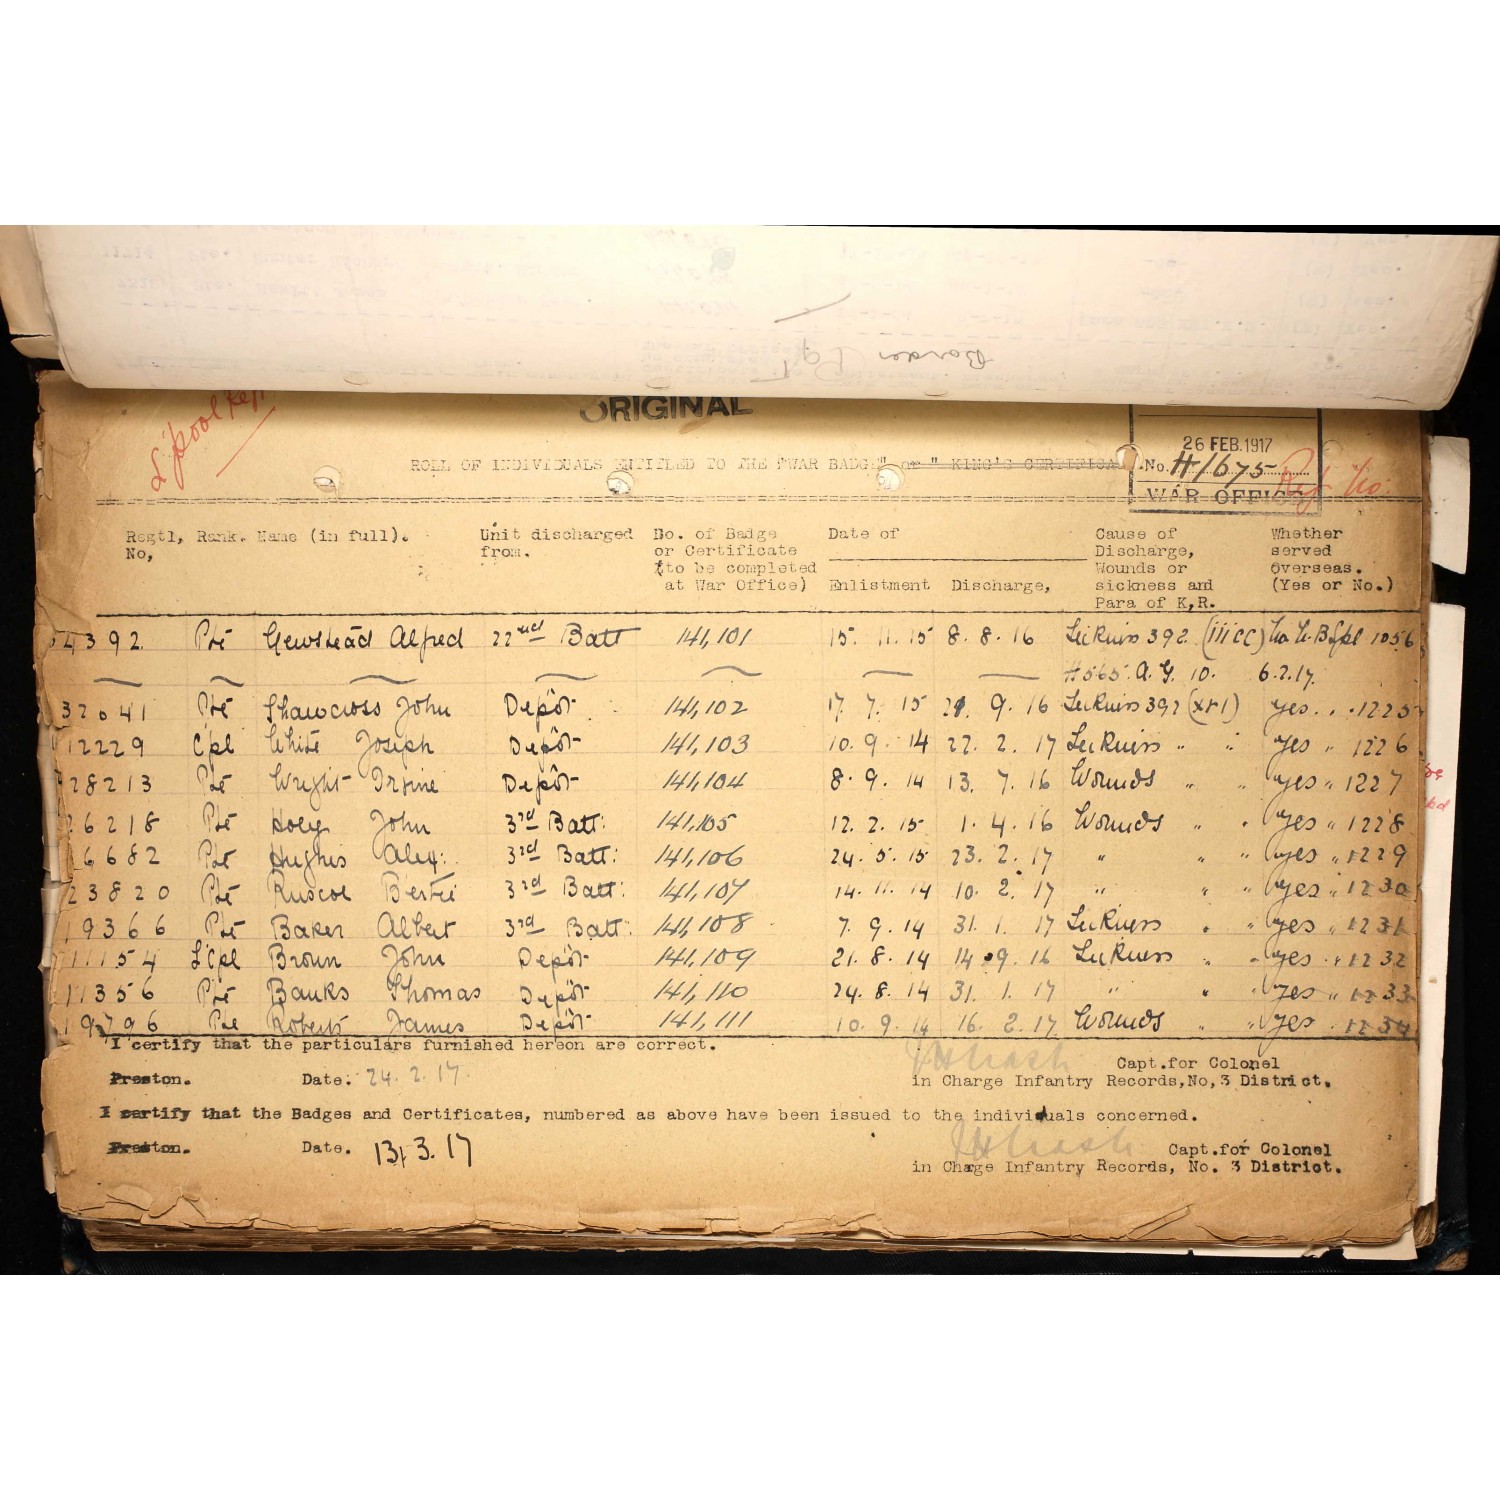 Border Rgt
L'pool Regt
ORIGINAL
26 FEB. 1917
ROLL OF INDIVIDUALS ENTITLED TO THE "WAR BADGE" or " KING'S CERTIFICA
No. H/1675
WAR OFFICE
Regtl, Rank. Name (in full). Unit discharged No. of Badge Date of Cause of Whether
No, from. or Certificate Discharge, served
(to be completed Wounds or overseas.
at War Office) Enlistment Discharge, sickness and (Yes or No.)
Para of K,R.
54392 Pte Gewstead Alfred 22nd Batt 141,101 15. 11. 15 8. 8. 16 Sickness 392 (iii cc) No 1056
H565 A.G. 10. 6.2.17.
32641 Pte Shawcross John Depôt 141,102 17. 7. 15 21. 9. 16 Sickness 392 (xvi) yes " 1225
12229 Cpl White Joseph Depôt 141,103 10. 9. 14 22. 2. 17 Sickness " " yes " 1226
28213 Pte Wright Irvine Depôt 141,104 8. 9. 14 13. 7. 16 Wounds " " yes " 1227
26218 Pte Hoey John 3rd Batt: 141,105 12. 2. 15 1. 4. 16 Wounds " " yes " 1228
6682 Pte Hughes Alex: 3rd Batt: 141,106 24. 5. 15 23. 2. 17 " " " yes " 1229
23820 Pte Ruscoe Bertie 3rd Batt: 141,107 14. 11. 14 10. 2. 17 " " " yes " 1230
19366 Pte Baker Albert 3rd Batt: 141,108 7. 9. 14 31. 1. 17 Sickness " " yes " 1231
11154 L'Cpl Brown John Depôt 141,109 21. 8. 14 14. 9. 16 Sickness " " yes " 1232
11356 Pte Banks Thomas Depôt 141,110 24. 8. 14 31. 1. 17 " " " yes " 1233
19796 Pte Roberts James Depôt 141,111 10. 9. 14 16. 2. 17 Wounds " " yes " 1234
I certify that the particulars furnished hereon are correct.
Capt.for Colonel
Preston. Date. 24. 2. 17. in Charge Infantry Records,No,3 District.
I certify that the Badges and Certificates, numbered as above have been issued to the individuals concerned.
Preston. Date. 13/3.17 Capt.for Colonel
in Charge Infantry Records, No. 3 District.